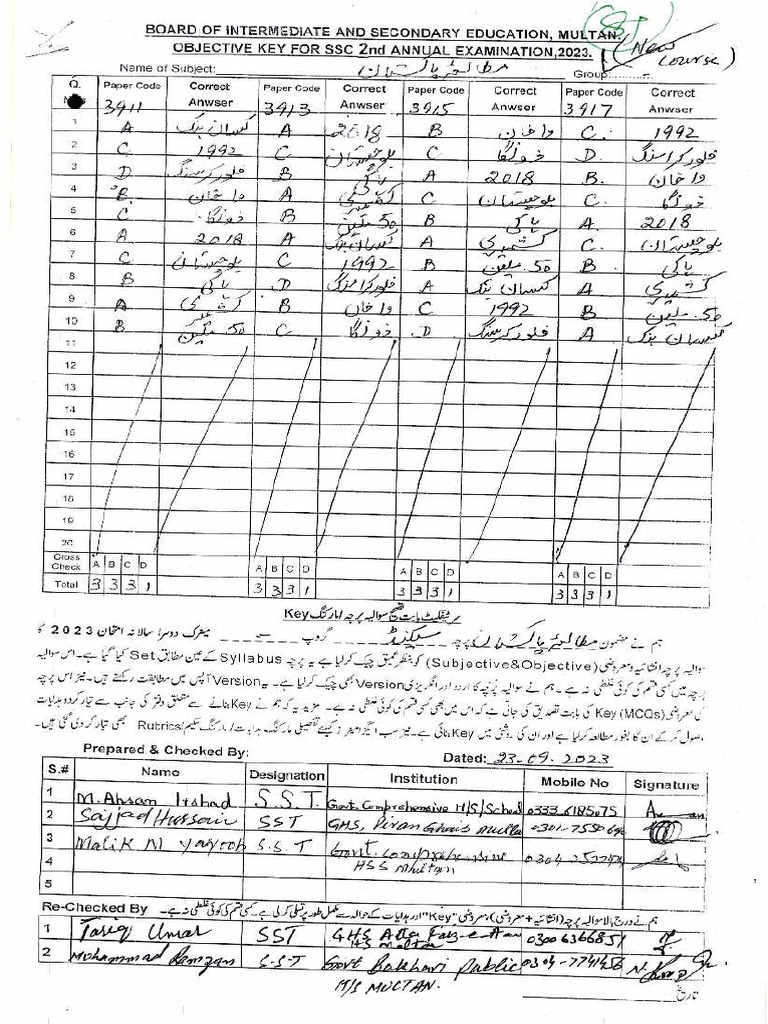 BOARD OF INTERMEDIATE AND SECONDARY EDUCATION, MULTAN.
OBJECTIVE KEY FOR SSC 2nd ANNUAL EXAMINATION,2023. (New Course)
Name of Subject: مطالعہ پاکستان Group:
Q. Nos Paper Code Correct Anwser Paper Code Correct Anwser Paper Code Correct Anwser Paper Code Correct Anwser
3911 3913 3915 3917
1 A کسان بنک A 2018 B واخان C 1992
2 C 1992 C بلوچستان C ڈونگا D فلور کراسنگ
3 D فلور کراسنگ B ہاکی A 2018 B واخان
4 B واخان A کشمیری C بلوچستان C ڈونگا
5 C ڈونگا B 50 ملین B ہاکی A 2018
6 A 2018 A کسان بنک A کشمیری C بلوچستان
7 C بلوچستان C 1992 B 50 ملین B ہاکی
8 B ہاکی D فلور کراسنگ A کسان بنک A کشمیری
9 A کشمیری B واخان C 1992 B 50 ملین
10 B 50 ملین C ڈونگا D فلور کراسنگ A کسان بنک
11
12
13
14
15
16
17
18
19
20
Cross Check A B C D A B C D A B C D A B C D
Total 3 3 3 1 3 3 3 1 3 3 3 1 3 3 3 1
سرٹیفکیٹ بابت تصحیح سوالیہ پرچہ / مارکنگ Key
ہم نے مضمون مطالعہ پاکستان پرچہ سیکنڈ گروپ میٹرک دوسرا سالانہ امتحان 2023 کا
سوالیہ پرچہ انشائیہ و معروضی (Subjective&Objective) کو بنظر عمیق چیک کر لیا ہے یہ پرچہ Syllabus کے عین مطابق Set کیا گیا ہے۔ اس سوالیہ
پرچہ میں کسی قسم کی کوئی غلطی نہ ہے۔ ہم نے سوالیہ پرچہ کا اردو اور انگریزی Version بھی چیک کر لیا ہے۔ یہ Version آپس میں مطابقت رکھتے ہیں۔ نیز اس پرچہ
کی معروضی (MCQs) Key کی بابت تصدیق کی جاتی ہے کہ اس میں بھی کسی قسم کی کوئی غلطی نہ ہے۔ مزید یہ کہ ہم نے Key بنانے سے متعلق دفتر کی جانب سے تیار کردہ ہدایات
وصول کر کے ان کا بغور مطالعہ کر لیا ہے اور ان کی روشنی میں Key بنائی ہے۔ نیز سب ایگزامینرز کیلئے تفصیلی مارکنگ ہدایات / مارکنگ سکیم / Rubrics بھی تیار کر دی گئی ہیں۔
Prepared & Checked By: Dated: 23-09-2023
S.# Name Designation Institution Mobile No Signature
1 M. Ahsan Irshad S.S.T. Govt. Comprehensive H/S/School 0333-6185075
2 Sajjad Hussain SST GHS,
3 Malik M Yaqoob S.S.T Govt. Comprehensive
4 HSS Multan
5
Re-Checked By ہم نے درج بالا سوالیہ پرچہ (انشائیہ + معروضی)، معروضی "Key" اور ہدایات کے حوالہ سے مکمل طور پر تسلی کر لی ہے۔ کسی قسم کی کوئی غلطی نہ ہے۔
1 Tariq Umar SST GHS 03006366851
HS Multan
2 Mohammad Ramzan S.S.T Govt Public 0304-7741456
H/S MULTAN.
تاریخ